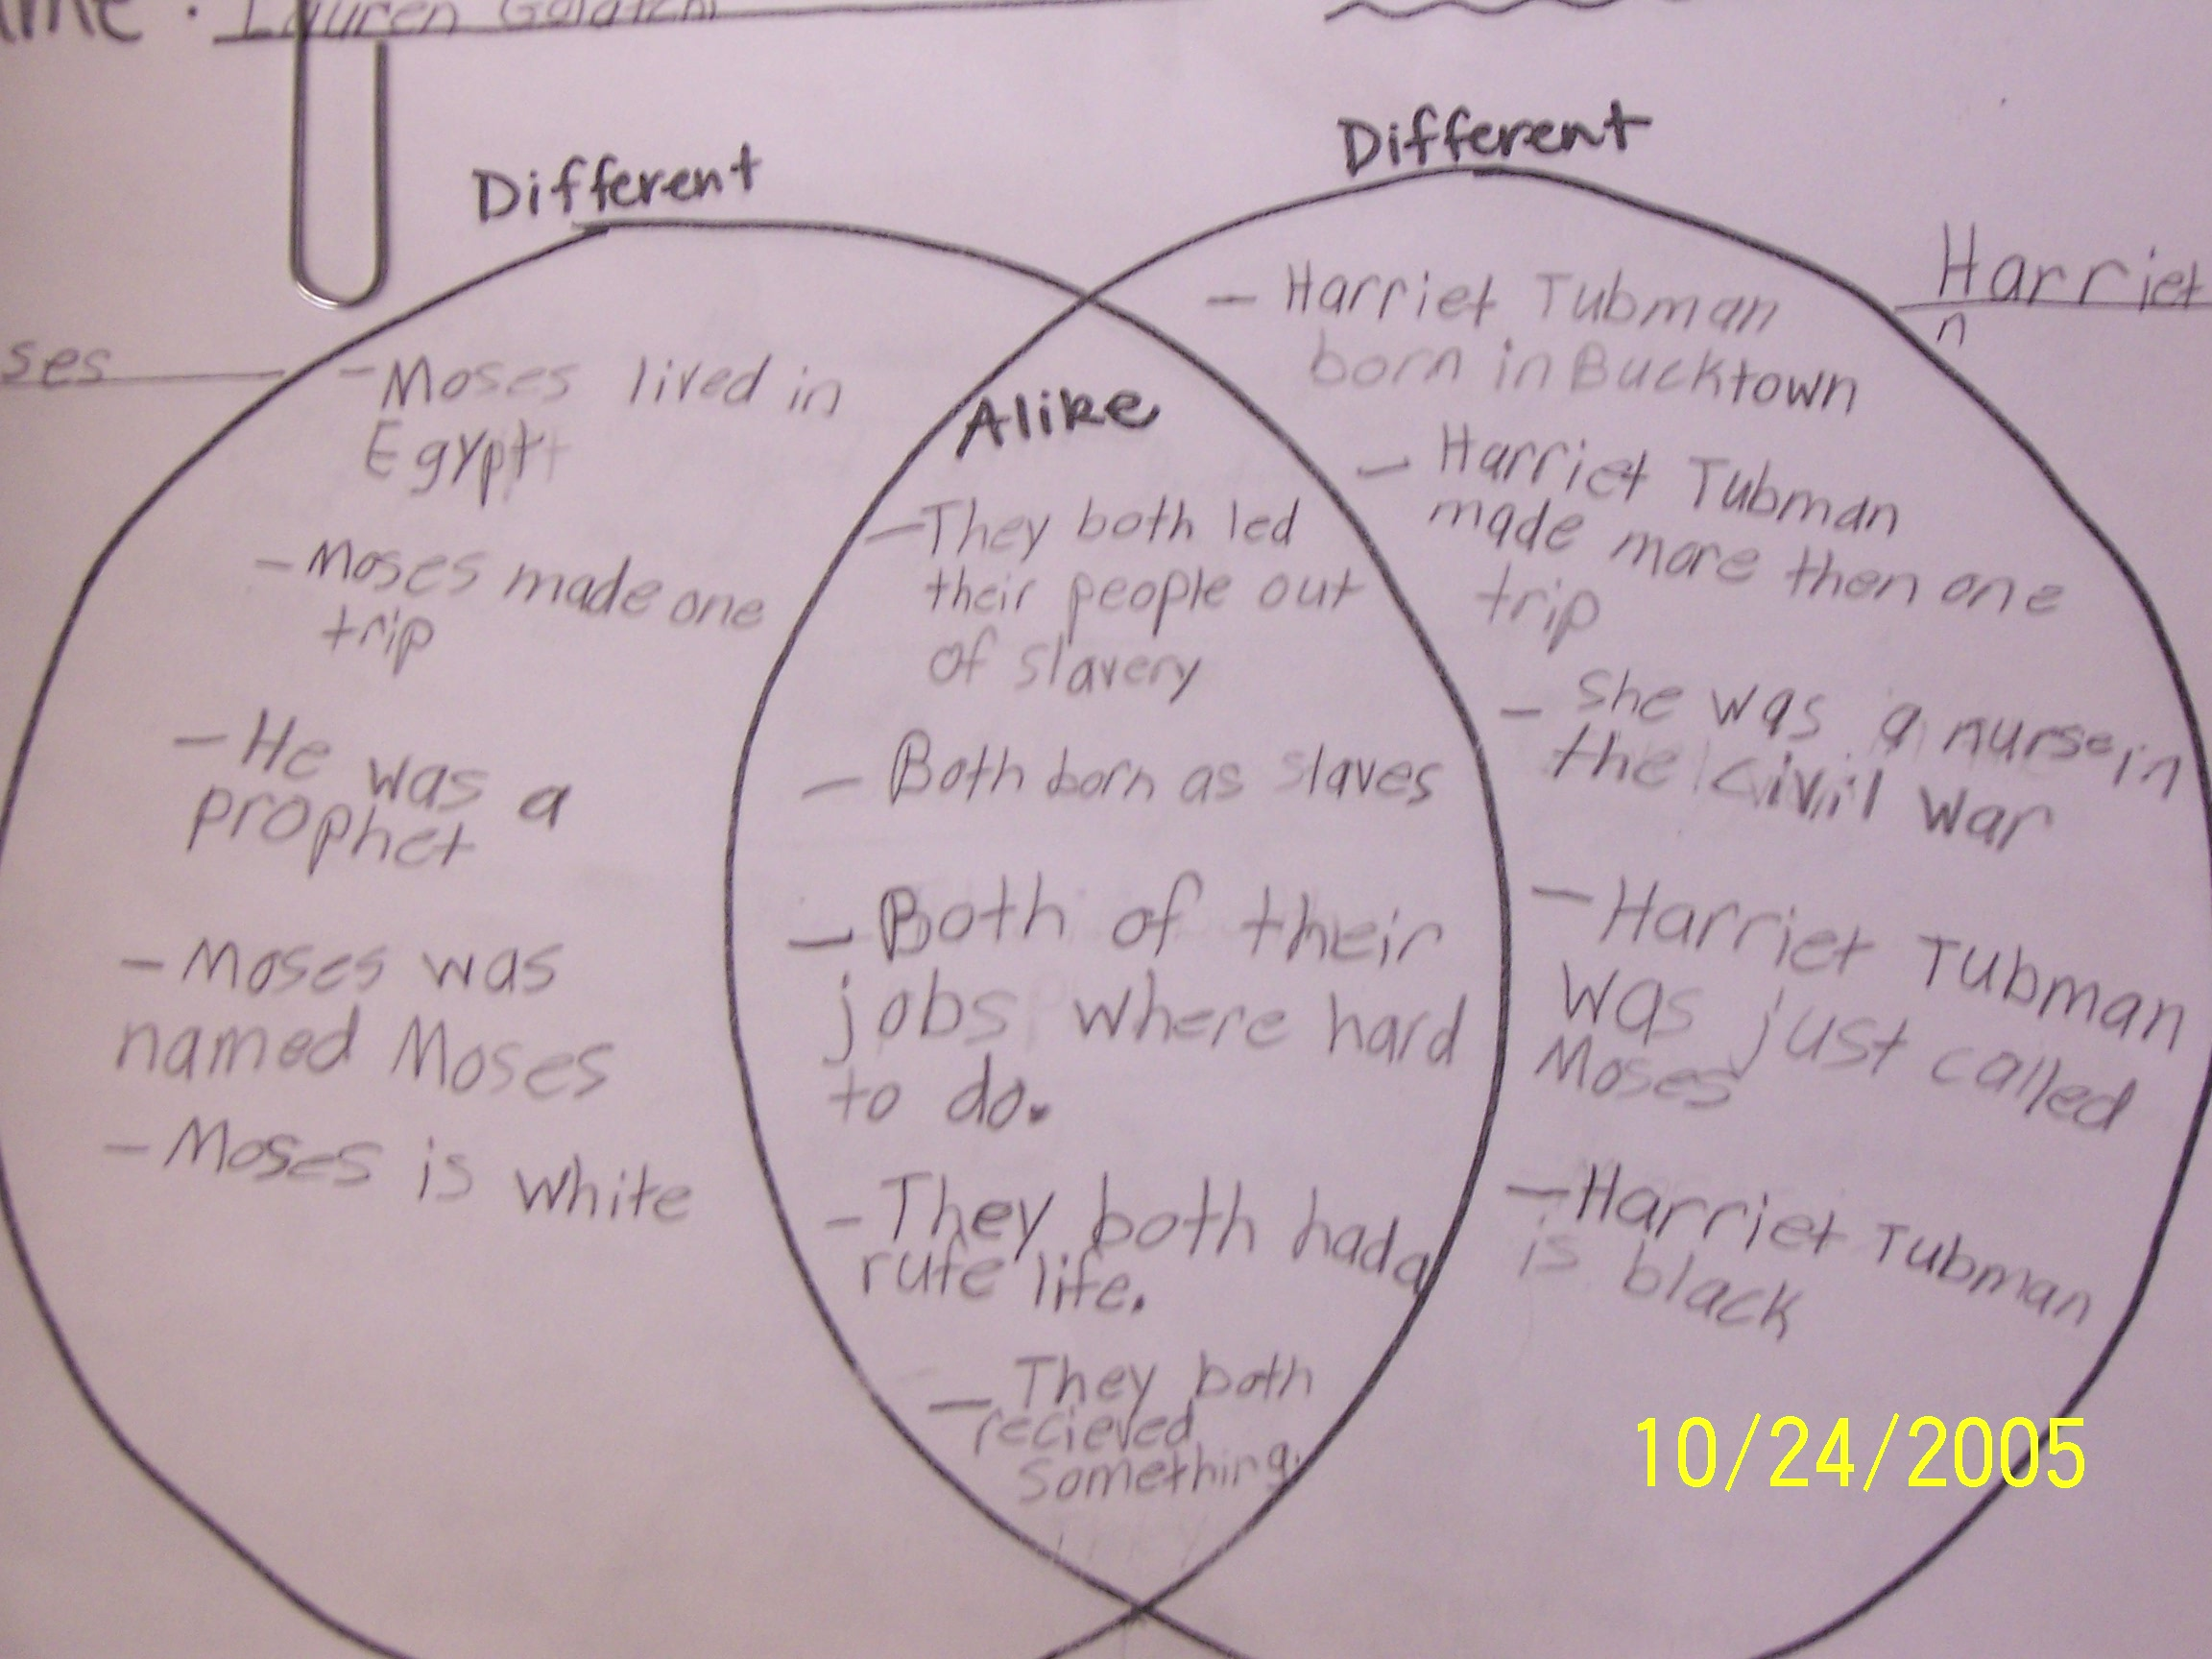 Lauren
Different
Different
Harriet
n
ses
- Moses lived in
Egypt
- Moses made one
trip
- He was a
prophet
- Moses was
named Moses
- Moses is white
Alike
- They both led
their people out
of slavery
- Both born as slaves
- Both of their
jobs where hard
to do.
- They both had a
rufe life.
- They both
recieved
something.
- Harriet Tubman
born in Bucktown
- Harriet Tubman
made more then one
trip
- She was a nurse in
the civil war
- Harriet Tubman
was just called
Moses
- Harriet Tubman
is black
10/24/2005